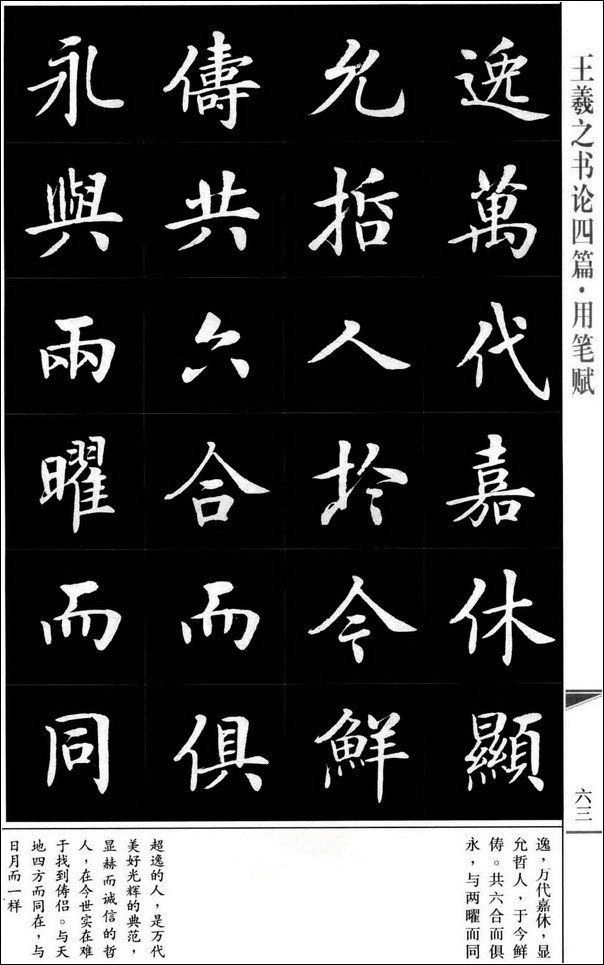 王羲之书论四篇·用笔赋
逸萬代嘉休顯
允哲人於今鮮
儔共六合而俱
永與兩曜而同
六三
逸，万代嘉休，显
允哲人，于今鲜
俦。共六合而俱
永，与两曜而同
超逸的人，是万代
美好光辉的典范，
显赫而诚信的哲
人，在今世实在难
于找到俦侣。与天
地四方而同在，与
日月而一样